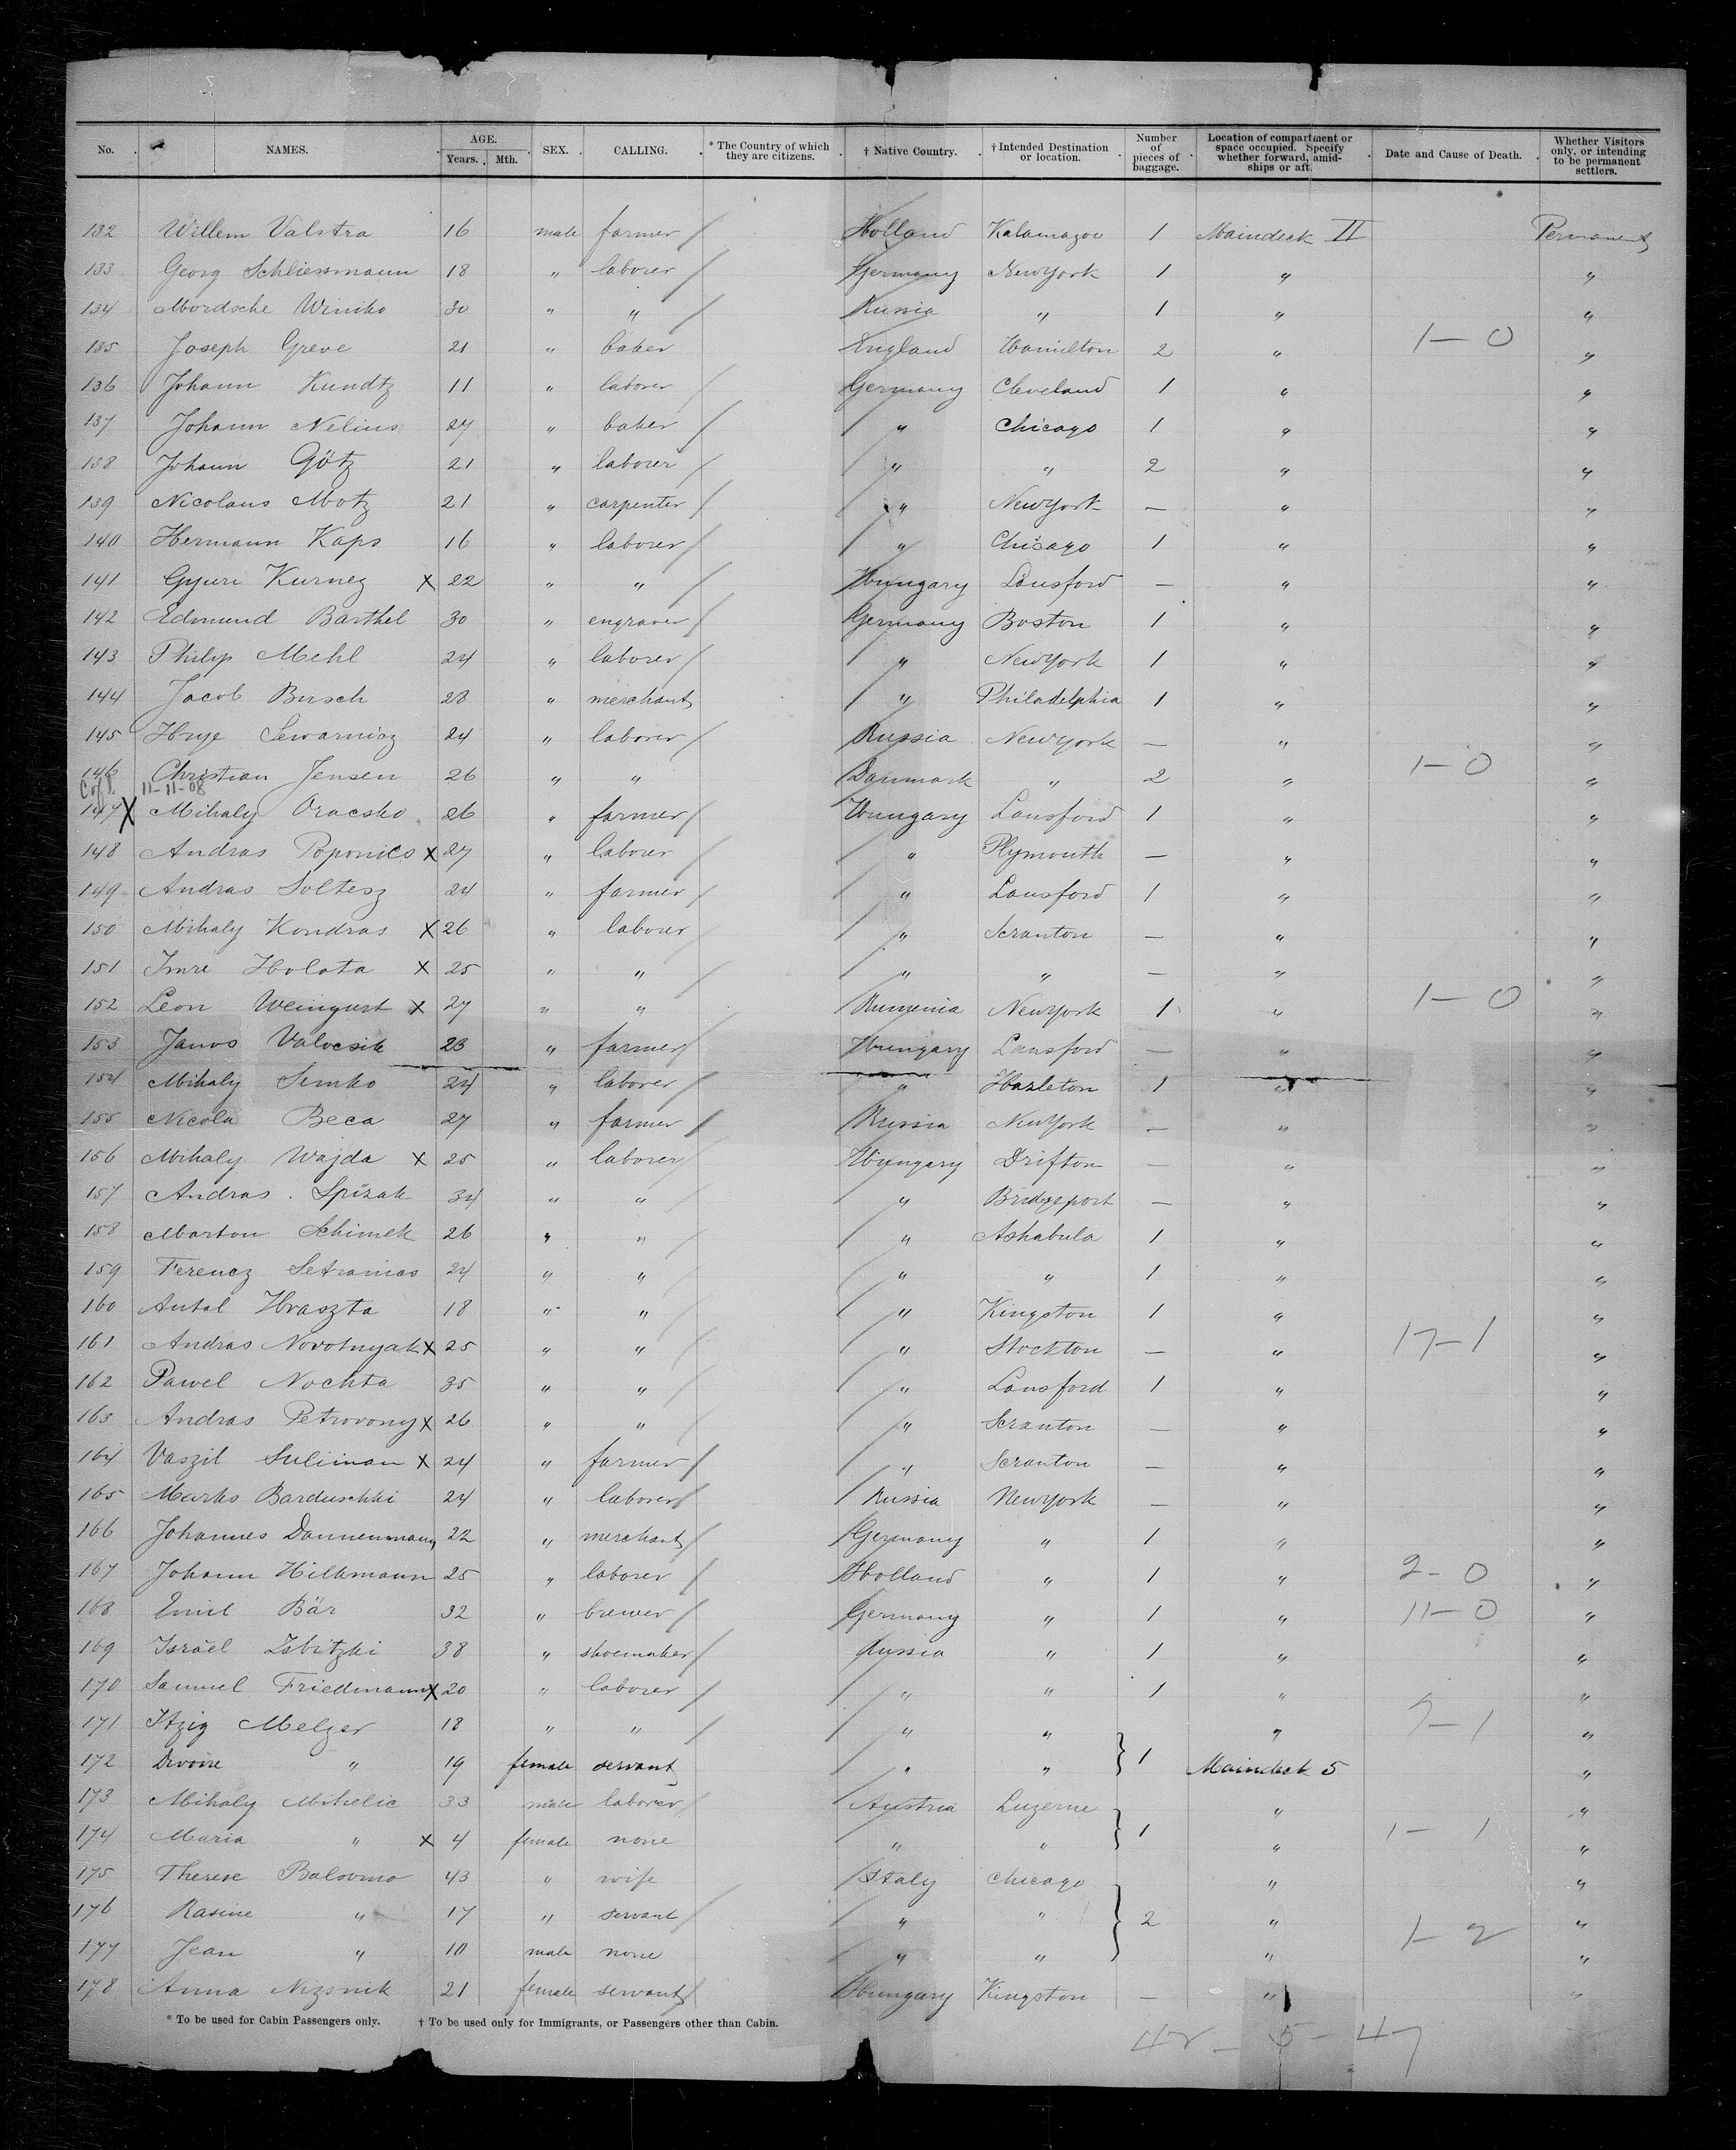 No. NAMES. AGE. Years. Mth. SEX. CALLING. * The Country of which they are citizens. † Native Country. † Intended Destination or location. Number of pieces of baggage. Location of compartment or space occupied. Specify whether forward, amidships or aft. Date and Cause of Death. Whether Visitors only, or intending to be permanent settlers.
132 Willem Valstra 16 male farmer Holland Kalamazoo 1 Maindeck II Permanent
133 Georg Schliessmann 18 " laborer Germany NewYork 1 " "
134 Mordsche Winiko 30 " " Russia " 1 " "
135 Joseph Greve 21 " baker England Hamilton 2 " 1-0 "
136 Johann Kundtz 11 " laborer Germany Cleveland 1 " "
137 Johann Nelius 27 " baker " Chicago 1 " "
138 Johann Götz 21 " laborer " " 2 " "
139 Nicolaus Motz 21 " carpenter " NewYork — " "
140 Hermann Kaps 16 " laborer " Chicago 1 " "
141 Gyuri Kurnez X 22 " " Hungary Lansford — " "
142 Edmund Barthel 30 " engraver Germany Boston 1 " "
143 Philip Mehl 24 " laborer " NewYork 1 " "
144 Jacob Busch 28 " merchant " Philadelphia 1 " "
145 24 " laborer Russia NewYork — " "
146 Christian Jensen 26 " " Danmark " 2 " 1-0 "
11-11-08
147 X Mihaly Oracsko 26 " farmer Hungary Lansford 1 " "
148 Andras Poponics X 27 " laborer " Plymouth — " "
149 Andras Soltesz 24 " farmer " Lansford 1 " "
150 Mihaly Kondras X 26 " laborer " Scranton — " "
151 Imre Holota X 25 " " " " — " "
152 Leon Weingurt X 27 " " Rumenia NewYork 1 " 1-0 "
153 Janos Valocsik 23 " farmer Hungary Lansford — " "
154 Mihaly Simko 24 " laborer " Hazleton 1 " "
155 Nicola Beca 27 " farmer Russia NewYork — " "
156 Mihaly Wajda X 25 " laborer Hungary Drifton — " "
157 Andras Spizak 34 " " " Bridgeport — " "
158 Marton Schimek 26 " " " Ashabula 1 " "
159 Ferencz Setramas 24 " " " " 1 " "
160 Antal Hraszta 18 " " " Kingston 1 " "
161 Andras Novotnyak X 25 " " " Stockton — " 17-1 "
162 Pawel Nochta 35 " " " Lansford 1 " "
163 Andras Petrovony X 26 " " " Scranton — " "
164 Vaszil Suliman X 24 " farmer " Scranton — " "
165 Marks Barduschki 24 " laborer Russia NewYork — " "
166 Johannes Dannenmann 22 " merchant Germany " 1 " "
167 Johann Hilkmann 25 " laborer Holland " 1 " 2-0 "
168 Emil Bär 32 " brewer Germany " 1 " 11-0 "
169 Israel Isbitzki 38 " shoemaker Russia " 1 " "
170 Samuel Friedmann X 20 " laborer " " 1 " "
171 Itzig Melzer 18 " " " " " "
172 Dwoire " 19 female servant " " 1 Maindeck 5 "
173 Mihaly Mihelic 33 male laborer Austria Luzerne " "
174 Maria " X 4 female none " " 1 " 1-1 "
175 Therese Balovino 43 " wife Italy Chicago " "
176 Rasine " 17 " servant " " 2 " "
177 Jean " 10 male none " " " 1-2 "
178 Anna Nizsnik 21 female servant Hungary Kingston — " "
* To be used for Cabin Passengers only. † To be used only for Immigrants, or Passengers other than Cabin.
42-5-47